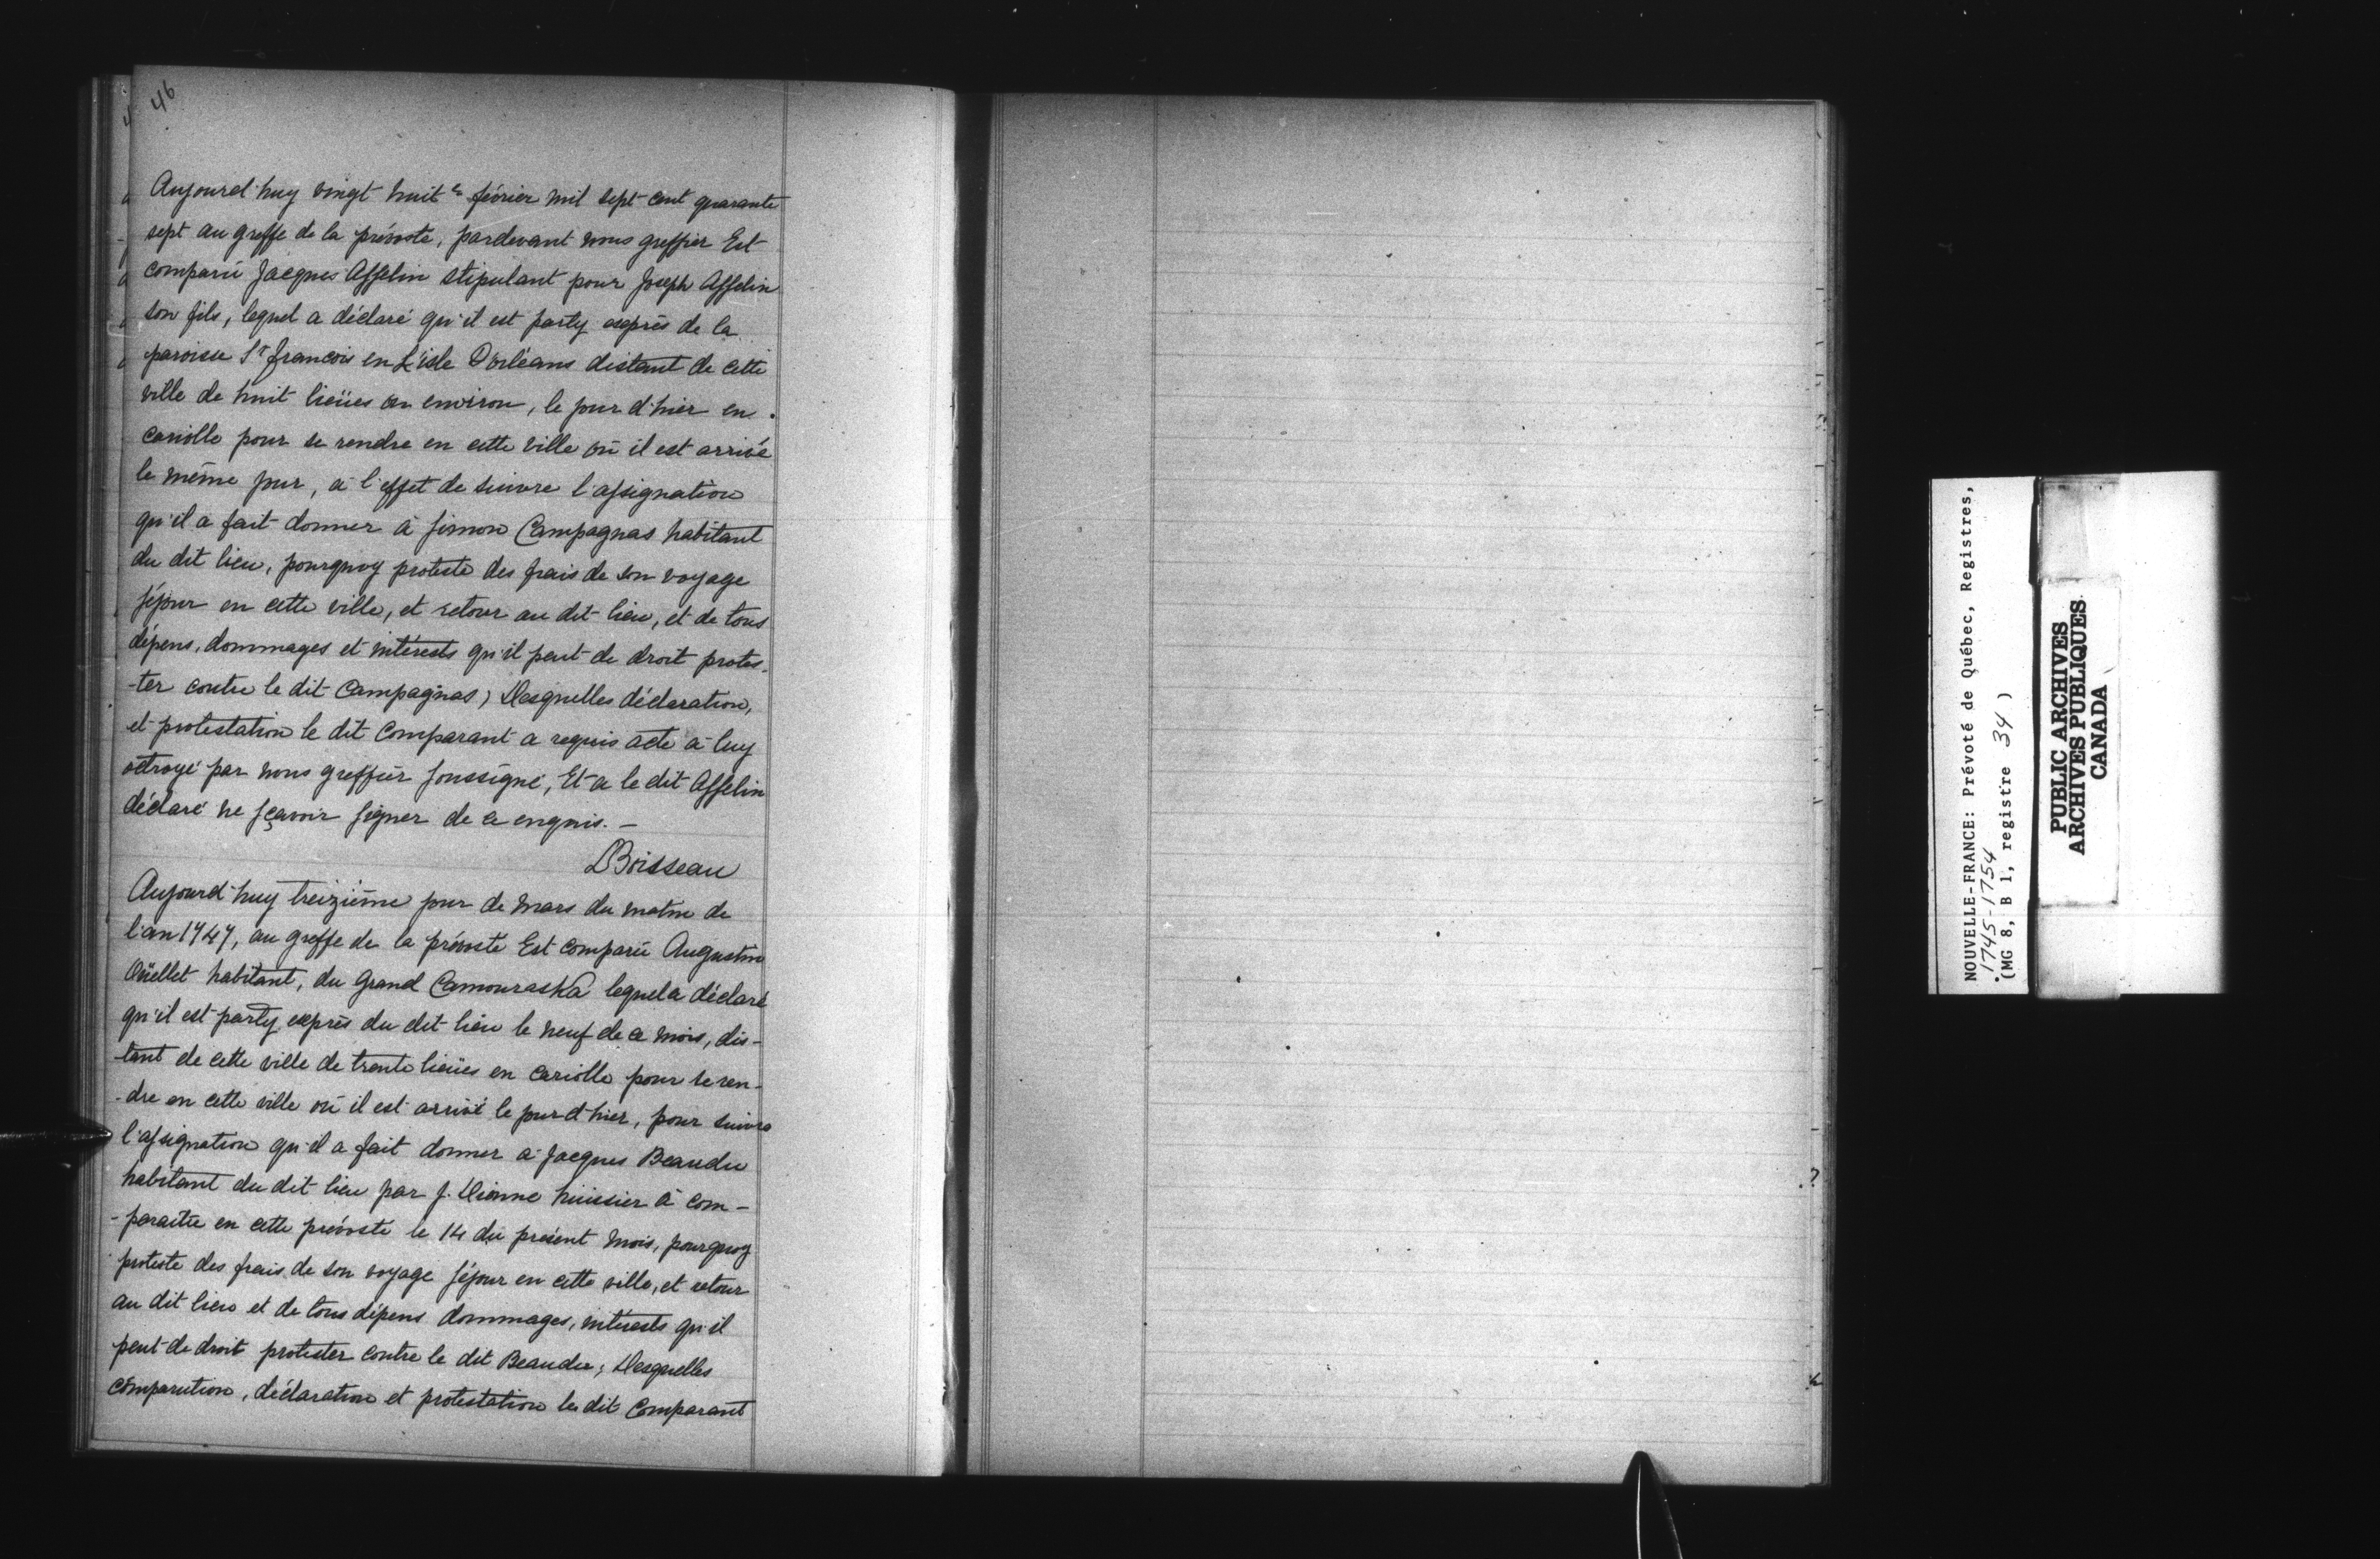 46
Aujourd'huy vingt huit e février mil sept cent quarante
sept au greffe de la prévosté, pardevant nous greffier Est
comparu Jacques Asselin stipulant pour Joseph Asselin
son fils, lequel a déclaré qu'il est party exprès de la
paroisse St françois en L'isle D'orléans distant de cette
ville de huit lieües ou environ, le jour d'hier en
cariolle pour se rendre en cette ville où il est arrivé
le même jour, à l'effet de suivre l'assignation
qu'il a fait donner à Simon Campagnas habitant
du dit lieu, pourquoy proteste des frais de son voyage
séjour en cette ville, et retour au dit lieu, et de tous
dépens, dommages et intérests qu'il peut de droit protes-
-ter contre le dit Campagnas; Desquelles déclaration,
et protestation le dit Comparant a requis acte à luy
octroyé par nous greffier soussigné, Et a le dit Asselin
déclaré ne sçavoir signer de ce enquis. —
DBoisseau
Aujourd'huy treizième jour de mars du matin de
l'an 1747, au greffe de la prévosté Est comparu Augustin
Oüellet habitant, du Grand Camouraska lequel a déclaré
qu'il est party exprès du dit lieu le neuf de ce mois, dis-
-tant de cette ville de trente lieües en cariolle pour se ren-
-dre en cette ville où il est arrivé le jour d'hier, pour suivre
l'assignation qu'il a fait donner à Jacques Beaudu
habitant du dit lieu par J. Dionne huissier à com-
-paraitre en cette prévosté le 14 du présent mois, pourquoy
proteste des frais de son voyage séjour en cette ville, et retour
au dit lieu et de tous dépens dommages, intérests qu'il
peut de droit protester contre le dit Beaudu; Desquelles
comparution, déclaration et protestation le dit Comparant
NOUVELLE-FRANCE: Prévoté de Québec, Registres,
1745-1754
(MG 8, B 1, registre 34)
PUBLIC ARCHIVES
ARCHIVES PUBLIQUES
CANADA